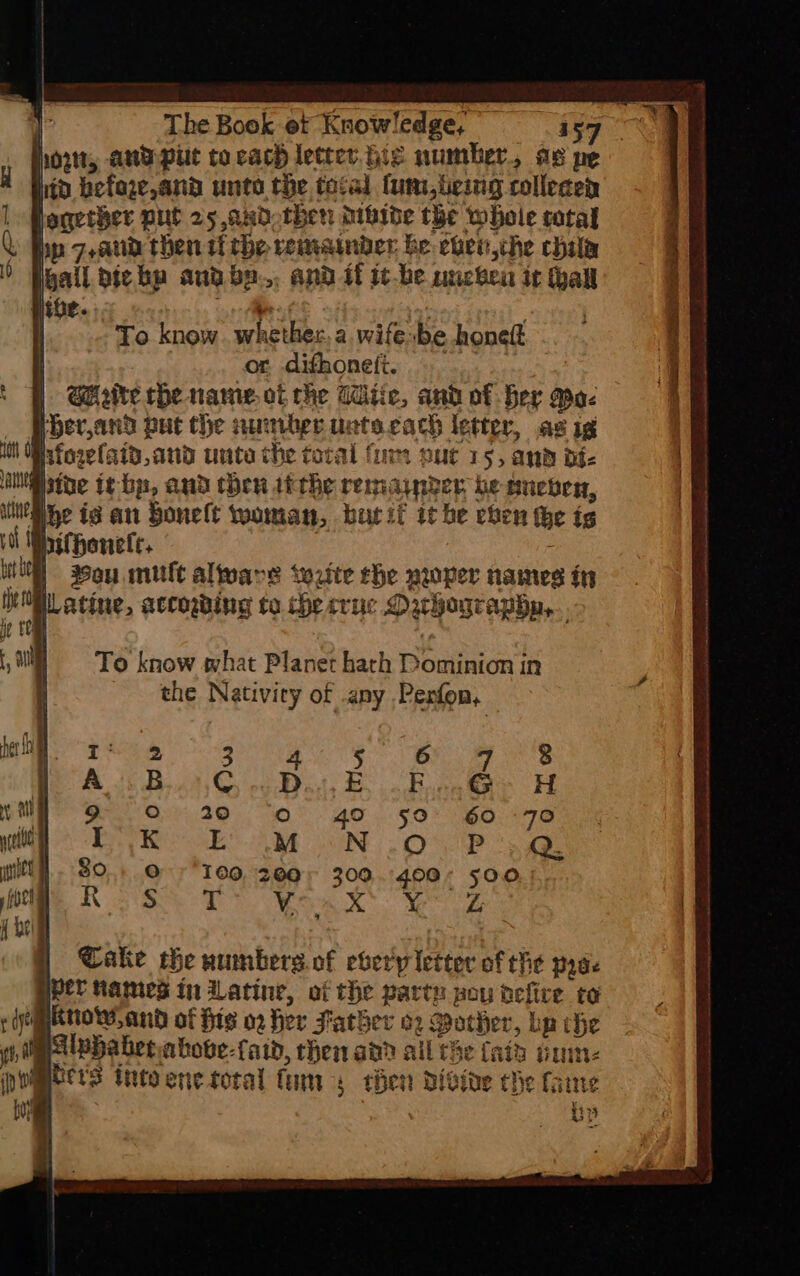 The Book of Knowledge, 157
born, and put to each letter his number, as ye
did before, and unto the total sum, being collected
together put 25, and then divide the whole total
by 7, and then if the remainder be even, the child
shall die by and by, and if it be uneben it shall
libe.
To know whether a wife be honest
or dishonest.
Write the name of the Wife, and of her Mo-
ther, and put the number unto each letter, as is
aforesaid, and unto the total sum put 15, and di-
vide it by, and then if the remainder be uneven,
she is an honest woman, but if it be even she is
dishonest.
You must always write the proper names in
Latine, according to the true Orthography.
To know what Planet hath Dominion in
the Nativity of any Person.
1 2 3 4 5 6 7 8
A B C D E F G H
9 0 20 0 40 50 60 70
I K L M N O P Q
80 0 100 200 300 400 500
R S T V X Y Z
Take the numbers of every letter of the pro-
per names in Latine, of the party you desire to
know, and of his or her Father or Mother, by the
Alphabet above-said, then add all the said num-
bers into one total sum; then divide the same
by